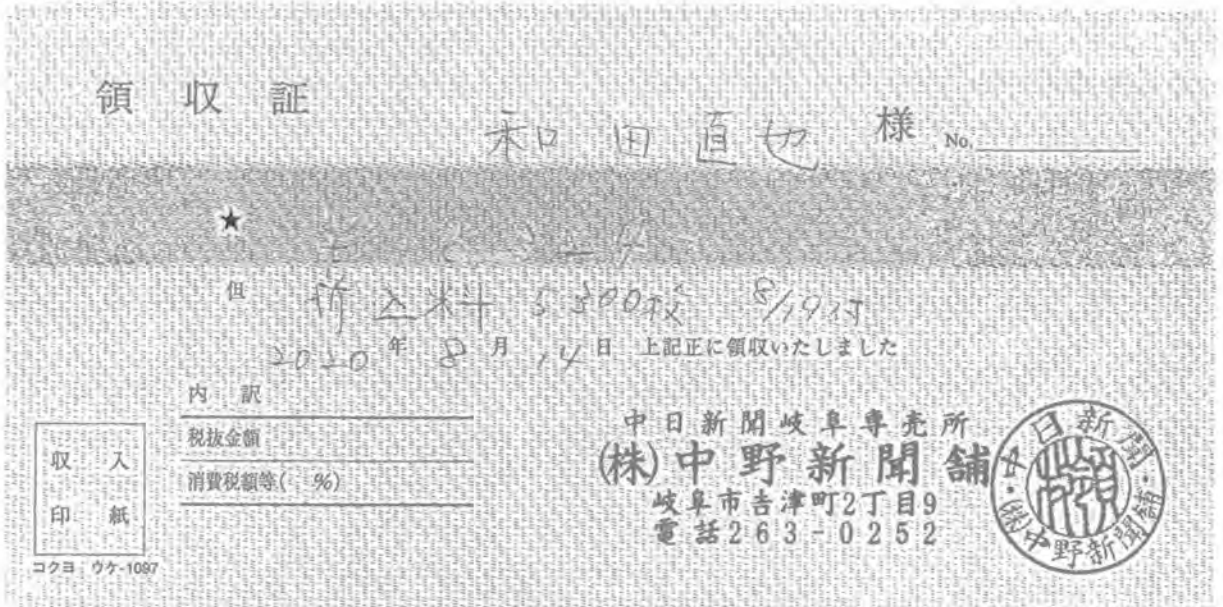 領収証
和田直也 様 No.
★
但 折込料 5300枚 8/19付
2020年8月14日 上記正に領収いたしました
内訳
税抜金額
消費税額等( %)
収入
印紙
コクヨ ウケ-1097
中日新聞岐阜専売所
(株)中野新聞舗
岐阜市吉津町2丁目9
電話263-0252
中日新聞・(株)中野新聞舗・